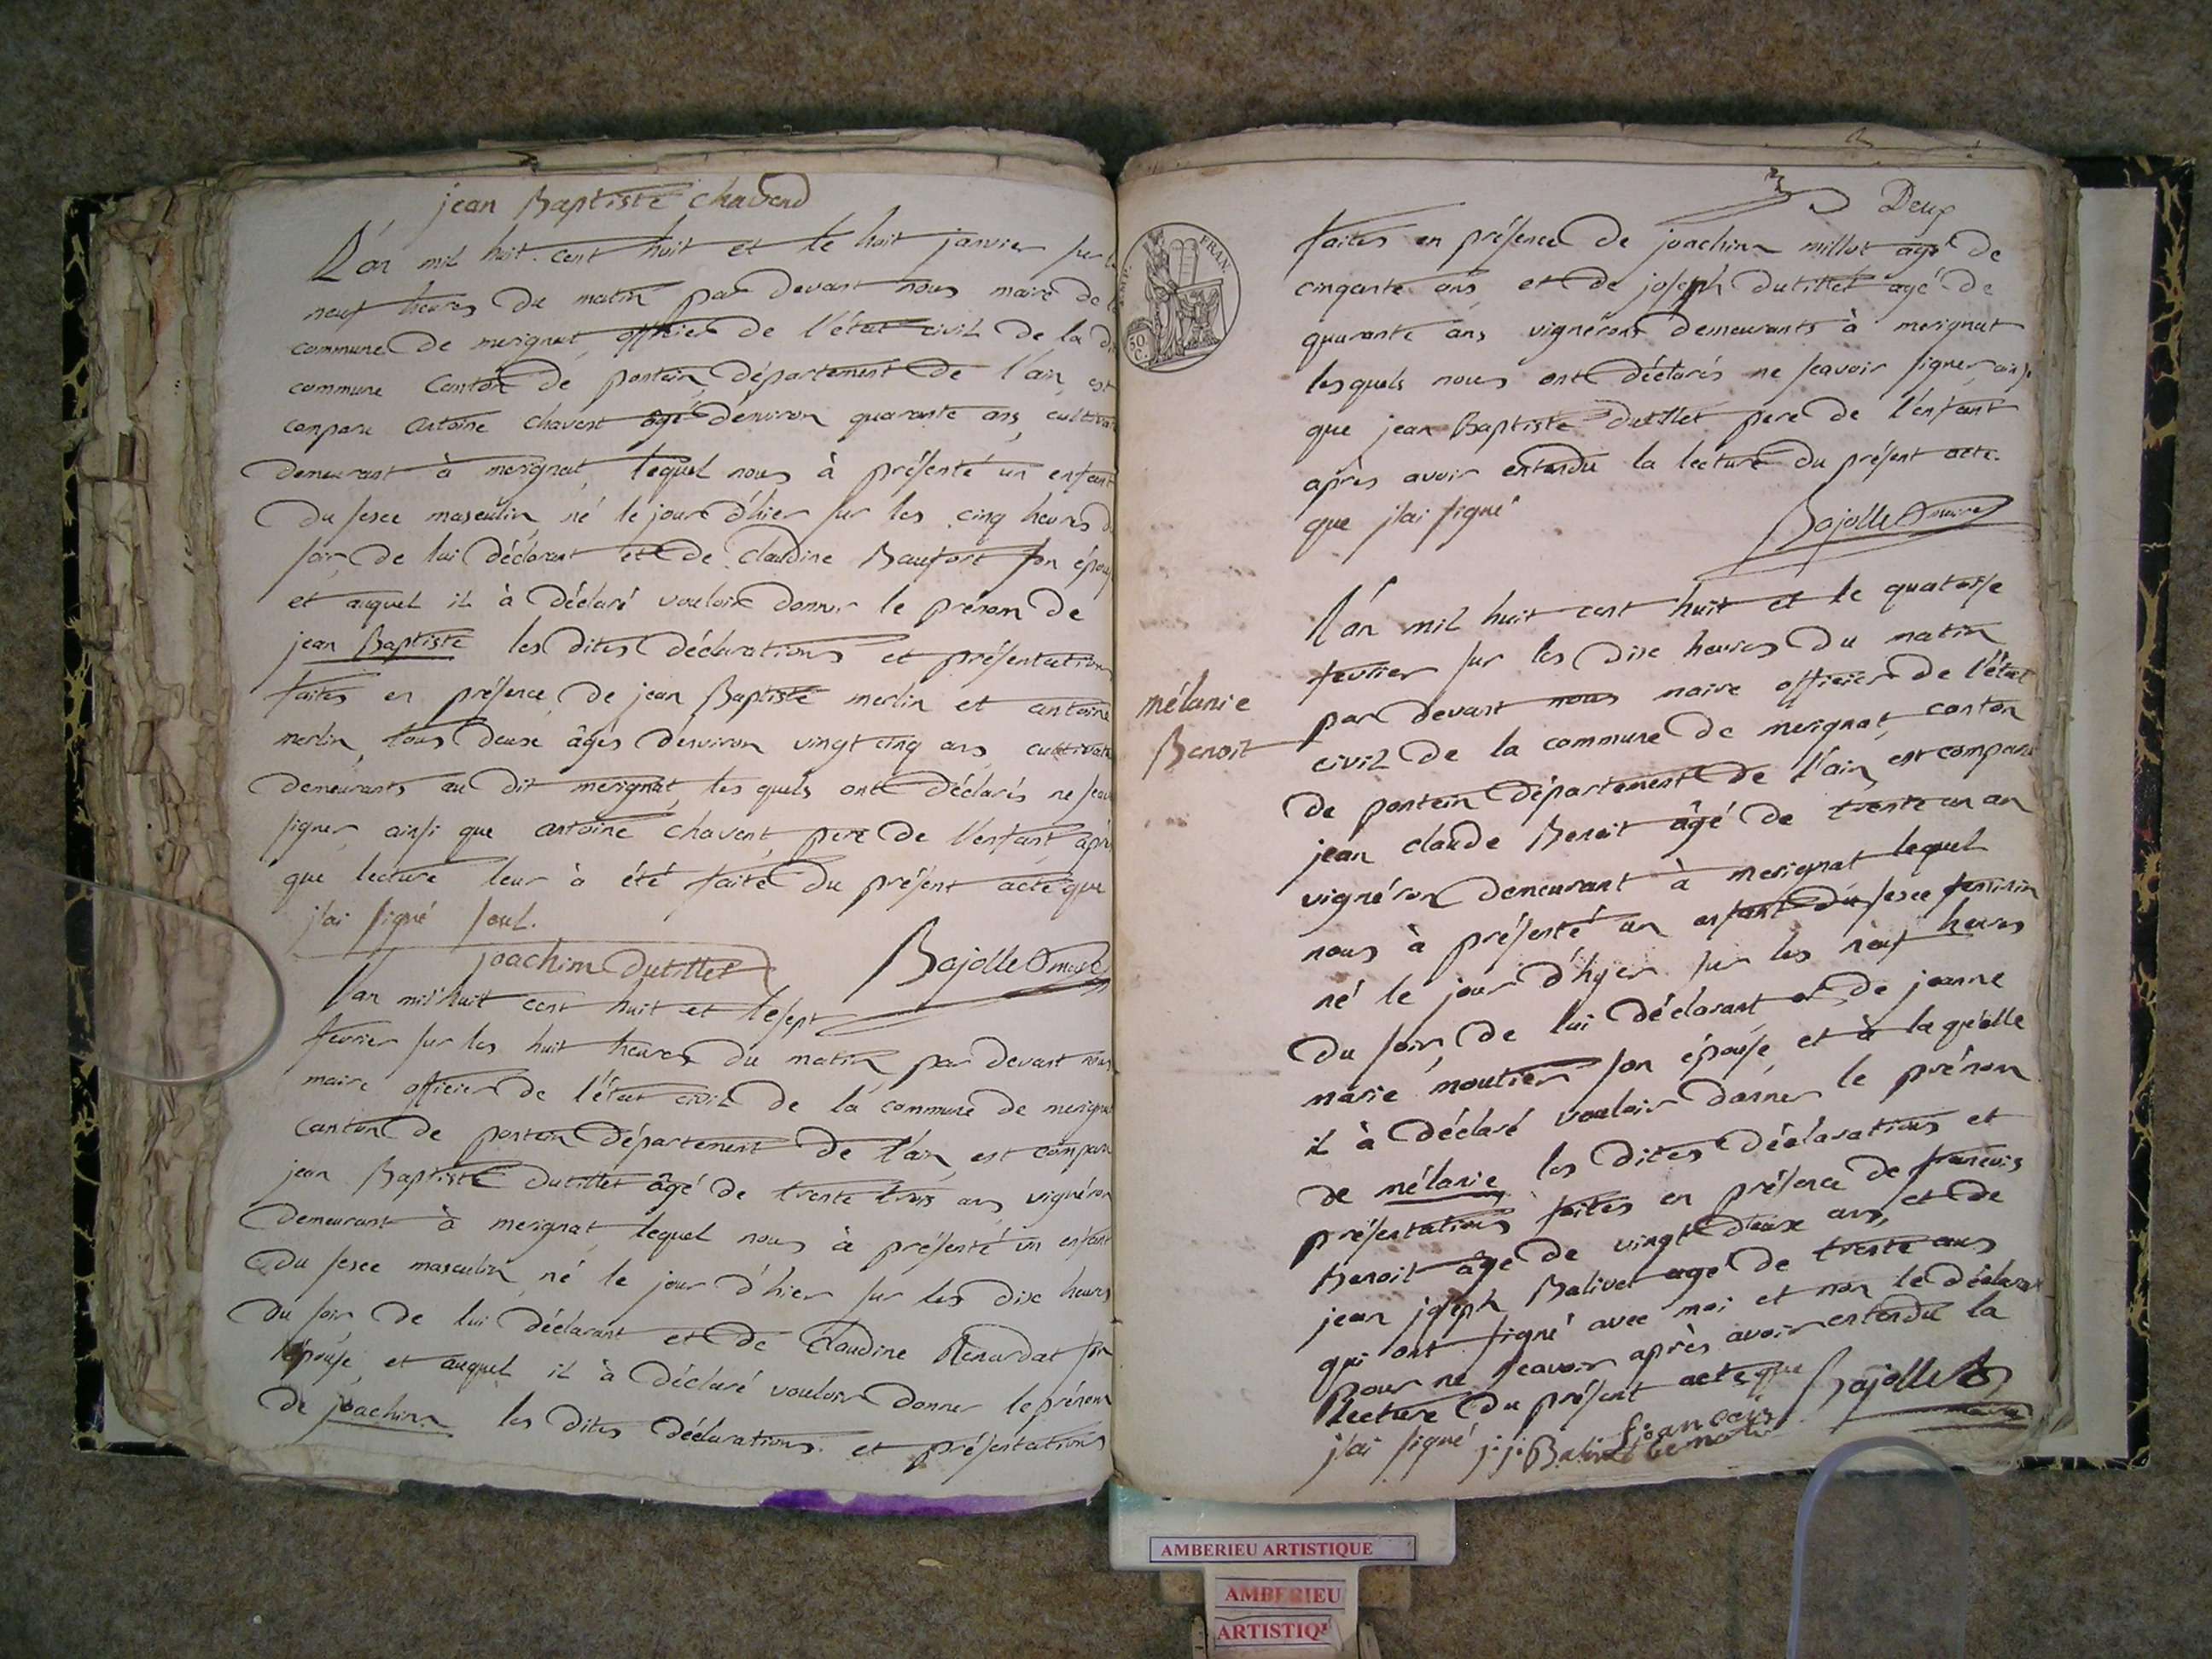 jean Baptiste chavend
L'an mil huit cent huit et le huit janvier sur le
neuf heures du matin par devant nous maire de la
commune de merignat officier de l'état civil de la di
commune Canton de poncin, département de l'ain, est
comparu antoine chavent agé denviron quarante ans, cultivat
demeurant à merignat, lequel nous à présenté un enfant
du sexe masculin, né le jour d'hier sur les cinq heures d
soir, de lui déclarant et de Claudine Baufort son épous
et auquel il à déclaré vouloir donner le prénom de
jean Baptiste les dites déclarations et présentations
faites en présence de jean Baptiste merlin et antoine
merlin, tous deux âgés denviron vingt cinq ans, cultivate
demeurants au dit merignat, les quels ont déclarés ne scav
signer ainsi que antoine chavent, pere de l'enfant aprè
que lecture leur à été faite du présent acte que
j'ai signé seul.
Bajolle maire
joachim Dutillet
L'an mil huit cent huit et le sept
fevrier sur les huit heures du matin par devant nous
maire officier de l'état civil de la commune de merignat
canton de poncin département de l'ain, est comparu
jean Baptiste Dutillet âgé de trente trois ans, vignéron
demeurant à merignat, lequel nous à présenté un enfant
du sexe masculin, né le jour d'hier sur les dix heures
du soir, de lui déclarant et de Claudine Renardat son
épouse, et auquel il à déclaré vouloir donner le prénom
de joachim les dites déclarations et présentations
Deux
FRAN.
50 C.
faites en présence de joachim millot agé de
cinqante ans et de joseph dutillet agé de
quarante ans vignérons demeurants à merignat
lesquels nous ont déclarés ne scavoir signer, ainsi
que jean Baptiste Dutillet pere de l'enfant
après avoir entendu la lecture du présent acte.
que j'ai signé
Bajolle maire
mélanie
Benoit
L'an mil huit cent huit et le quatorse
fevrier sur les dix heures du matin
par devant nous maire officier de l'état
civil de la commune de merignat, canton
de poncin département de l'ain, est comparu
jean claude Benoit âgé de trente un an
vignéron demeurant à merignat lequel
nous à présenté un enfant du sexe feminin
né le jour d'hyer sur les neuf heures
du soir, de lui déclarant et de jeanne
marie moutier son épouse, et à la quelle
il à déclaré vouloir donner le prénom
de mélanie les dites déclarations et
présentations faites en présence de francois
Benoit agé de vingt deux ans, et de
jean joseph Balivet agé de trente ans
qui ont signé avec moi et non le déclarant
pour ne scavoir après avoir entendu la
lecture du présent acte que
j'ai signé
j.j. Balivet
francois benoit
Bajolle
maire
AMBERIEU ARTISTIQUE
AMBERIEU
ARTISTIQU